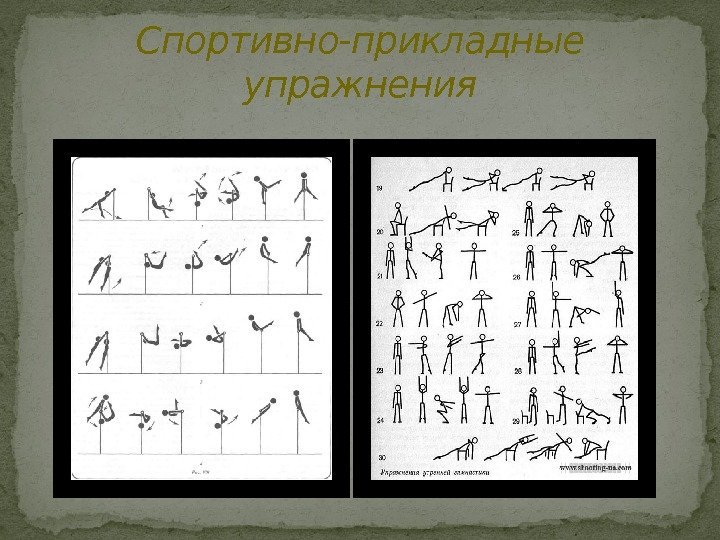 Спортивно-прикладные
упражнения
19
20
25
21
26
22
27
23
28
24
29
30
www.shooting-ua.com
Упражнения утренней гимнастики